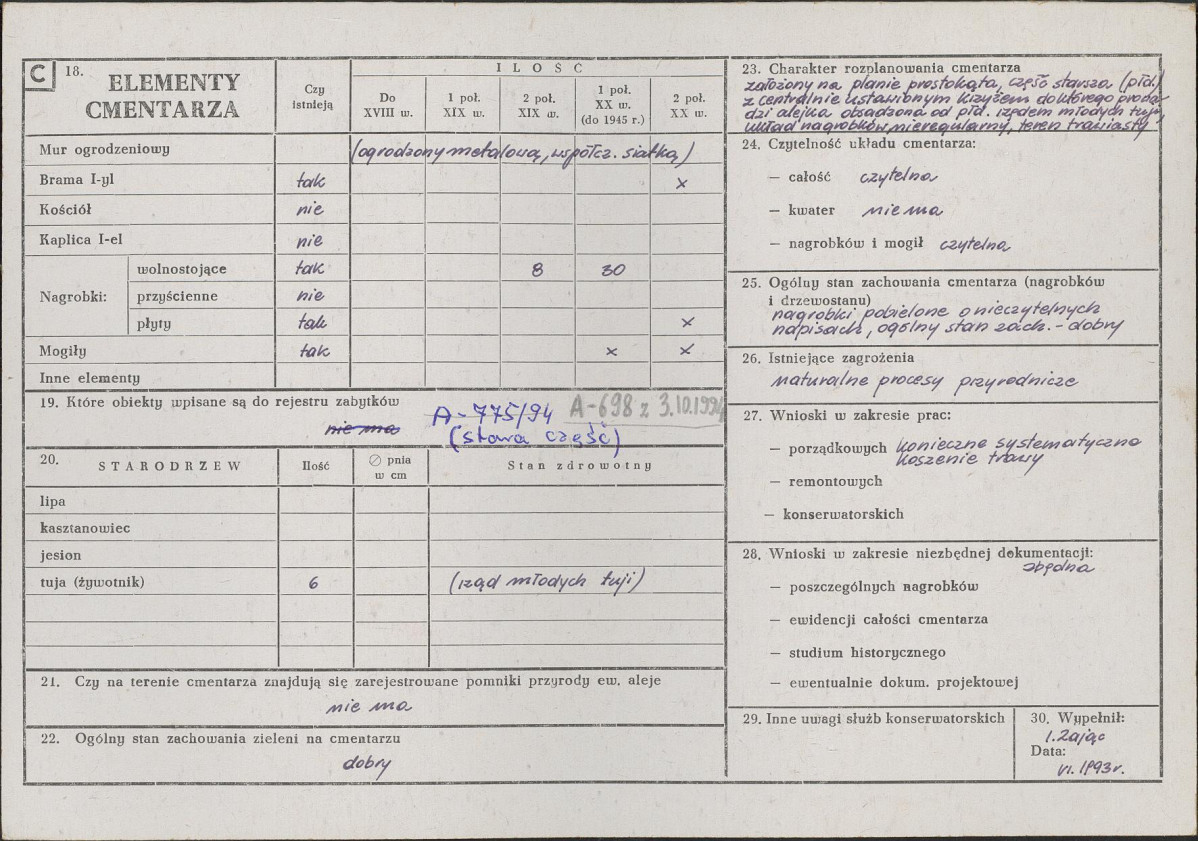 C 18. ELEMENTY CMENTARZA
Czy istnieją
ILOŚĆ
Do XVIII w.
1 poł. XIX w.
2 poł. XIX w.
1 poł. XX w. (do 1945 r.)
2 poł. XX w.
Mur ogrodzeniowy (ogrodzony metalową, współcz. siatką)
Brama I-yl tak x
Kościół nie
Kaplica I-el nie
Nagrobki:
wolnostojące tak 8 30
przyścienne nie
płyty tak x
Mogiły tak x x
Inne elementy
19. Które obiekty wpisane są do rejestru zabytków
nie ma A-775/94 A-698 z 3.10.1994
(stara część)
20. STARODRZEW Ilość ∅ pnia w cm Stan zdrowotny
lipa
kasztanowiec
jesion
tuja (żywotnik) 6 (rząd młodych tuji)
21. Czy na terenie cmentarza znajdują się zarejestrowane pomniki przyrody ew. aleje
nie ma
22. Ogólny stan zachowania zieleni na cmentarzu
dobry
23. Charakter rozplanowania cmentarza
założony na planie prostokąta, część starsza (płd.)
z centralnie ustawionym krzyżem do którego prowa-
dzi alejka obsadzona od płd. rzędem młodych tuji,
układ nagrobków nieregularny, teren trawiasty
24. Czytelność układu cmentarza:
— całość czytelna
— kwater nie ma
— nagrobków i mogił czytelna
25. Ogólny stan zachowania cmentarza (nagrobków
i drzewostanu)
nagrobki pobielone o nieczytelnych
napisach, ogólny stan zach. - dobry
26. Istniejące zagrożenia
naturalne procesy przyrodnicze
27. Wnioski w zakresie prac:
— porządkowych konieczne systematyczne
koszenie trawy
— remontowych
— konserwatorskich
28. Wnioski w zakresie niezbędnej dokumentacji:
zbędna
— poszczególnych nagrobków
— ewidencji całości cmentarza
— studium historycznego
— ewentualnie dokum. projektowej
29. Inne uwagi służb konserwatorskich
30. Wypełnił:
I. Zając
Data:
VI. 1993r.